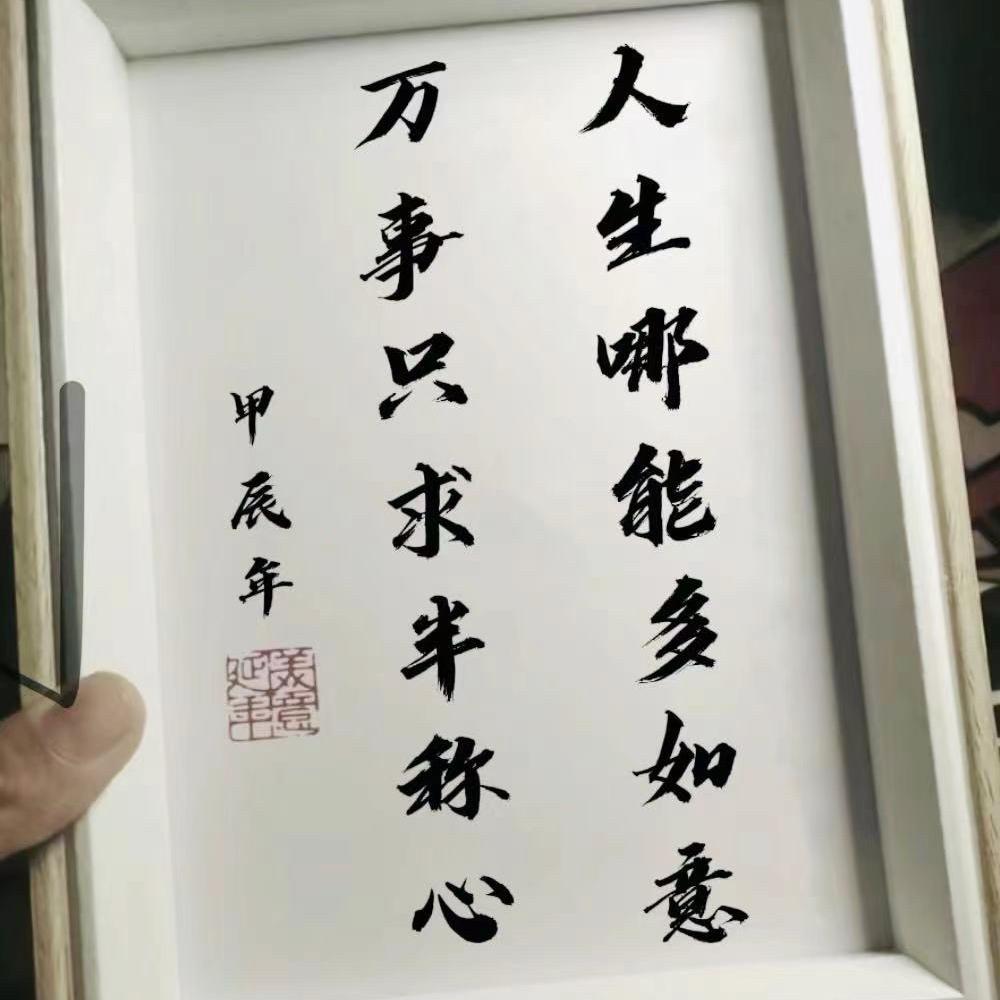 人生哪能多如意
万事只求半称心
甲辰年
美意延年